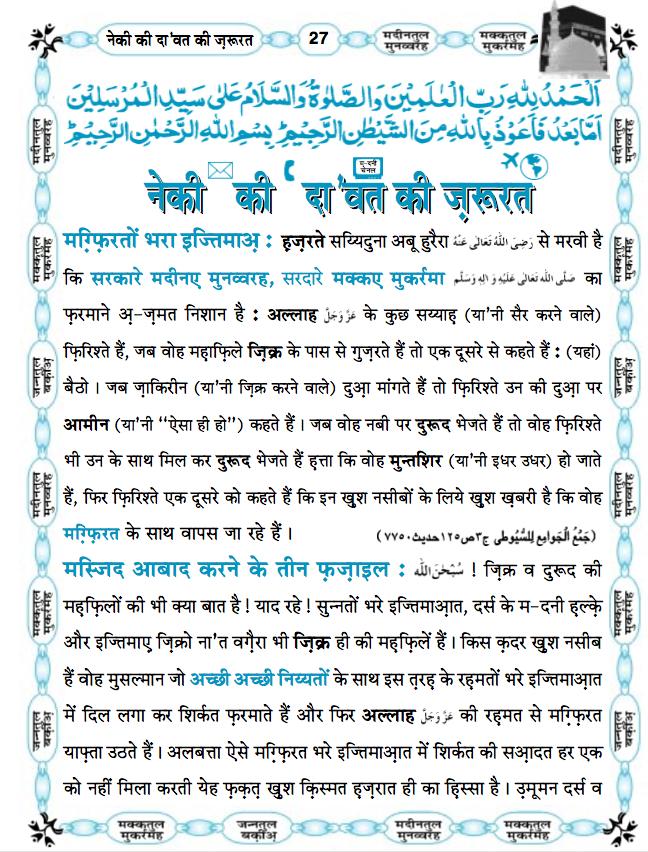 नेकी की दा'वत की ज़रूरत
27
मदीनतुल मुनव्वरह
मक्कतुल मुकर्रमह
اَلْحَمْدُ لِلّٰهِ رَبِّ الْعٰلَمِيْنَ وَالصَّلٰوةُ وَالسَّلَامُ عَلٰى سَيِّدِ الْمُرْسَلِيْنَ
اَمَّا بَعْدُ فَاَعُوْذُ بِاللّٰهِ مِنَ الشَّيْطٰنِ الرَّجِيْمِ ط بِسْمِ اللّٰهِ الرَّحْمٰنِ الرَّحِيْمِ ط
म-दनी चेनल
नेकी की दा'वत की ज़रूरत
मग़्फ़िरतों भरा इज्तिमाअ़ : हज़रते सय्यिदुना अबू हुरैरा رَضِیَ اللّٰہُ تَعَالٰی عَنْہُ से मरवी है
कि सरकारे मदीनए मुनव्वरह, सरदारे मक्कए मुकर्रमा صَلَّی اللّٰہُ تَعَالٰی عَلَیْہِ وَ اٰلِہٖ وَسَلَّم का
फ़रमाने अ़-ज़मत निशान है : अल्लाह عَزَّ وَجَلَّ के कुछ सय्याह़ (या'नी सैर करने वाले)
फ़िरिश्ते हैं, जब वोह मह़ाफ़िले ज़िक्र के पास से गुज़रते हैं तो एक दूसरे से कहते हैं : (यहां)
बैठो । जब ज़ाकिरीन (या'नी ज़िक्र करने वाले) दुआ़ मांगते हैं तो फ़िरिश्ते उन की दुआ़ पर
आमीन (या'नी “ऐसा ही हो”) कहते हैं । जब वोह नबी पर दुरूद भेजते हैं तो वोह फ़िरिश्ते
भी उन के साथ मिल कर दुरूद भेजते हैं ह़त्ता कि वोह मुन्तशिर (या'नी इधर उधर) हो जाते
हैं, फिर फ़िरिश्ते एक दूसरे को कहते हैं कि इन ख़ुश नसीबों के लिये ख़ुश ख़बरी है कि वोह
मग़्फ़िरत के साथ वापस जा रहे हैं । (جَمْعُ الْجَوامِع لِلسُّیُوطی ج۳ص۱۲۵حدیث۷۷۵۰)
मस्जिद आबाद करने के तीन फ़ज़ाइल : سُبْحٰنَ اللّٰہ ! ज़िक्र व दुरूद की
मह़फ़िलों की भी क्या बात है ! याद रहे ! सुन्नतों भरे इज्तिमाआ़त, दर्स के म-दनी ह़ल्क़े
और इज्तिमाए ज़िक्रो ना'त वग़ैरा भी ज़िक्र ही की मह़फ़िलें हैं । किस क़दर ख़ुश नसीब
हैं वोह मुसल्मान जो अच्छी अच्छी निय्यतों के साथ इस त़रह़ के रह़मतों भरे इज्तिमाआ़त
में दिल लगा कर शिर्कत फ़रमाते हैं और फिर अल्लाह عَزَّ وَجَلَّ की रह़मत से मग़्फ़िरत
याफ़्ता उठते हैं । अलबत्ता ऐसे मग़्फ़िरत भरे इज्तिमाआ़त में शिर्कत की सआ़दत हर एक
को नहीं मिला करती येह फ़क़त़ ख़ुश क़िस्मत ह़ज़रात ही का ह़िस्सा है । उ़मूमन दर्स व
मदीनतुल मुनव्वरह
मक्कतुल मुकर्रमह
जन्नतुल बक़ीअ़
मदीनतुल मुनव्वरह
मक्कतुल मुकर्रमह
जन्नतुल बक़ीअ़
मदीनतुल मुनव्वरह
मक्कतुल मुकर्रमह
जन्नतुल बक़ीअ़
मदीनतुल मुनव्वरह
मक्कतुल मुकर्रमह
जन्नतुल बक़ीअ़
मक्कतुल मुकर्रमह
जन्नतुल बक़ीअ़
मदीनतुल मुनव्वरह
मक्कतुल मुकर्रमह